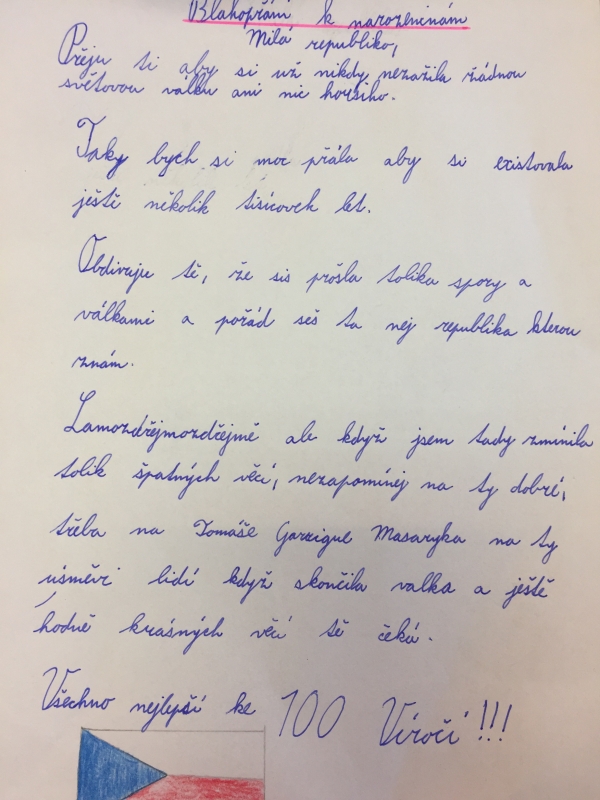 Blahopřání k narozeninám
Milá republiko,
Přeju ti aby si už nikdy nezažila žádnou
světovou válku ani nic horšího.
Taky bych si moc přála aby si existovala
ještě několik tisícovek let.
Obdivuju tě, že sis prošla tolika spory a
válkami a pořád seš ta nej republika kterou
znám.
Samozdřejmozdřejmě ale když jsem tady zmínila
tolik špatných věcí, nezapomínej na ty dobré,
třeba na Tomáše Garrigue Masaryka na ty
úsměvi lidí když skončila valka a ještě
hodně krásných věcí tě čeká.
Všechno nejlepší ke 100 Víročí!!!